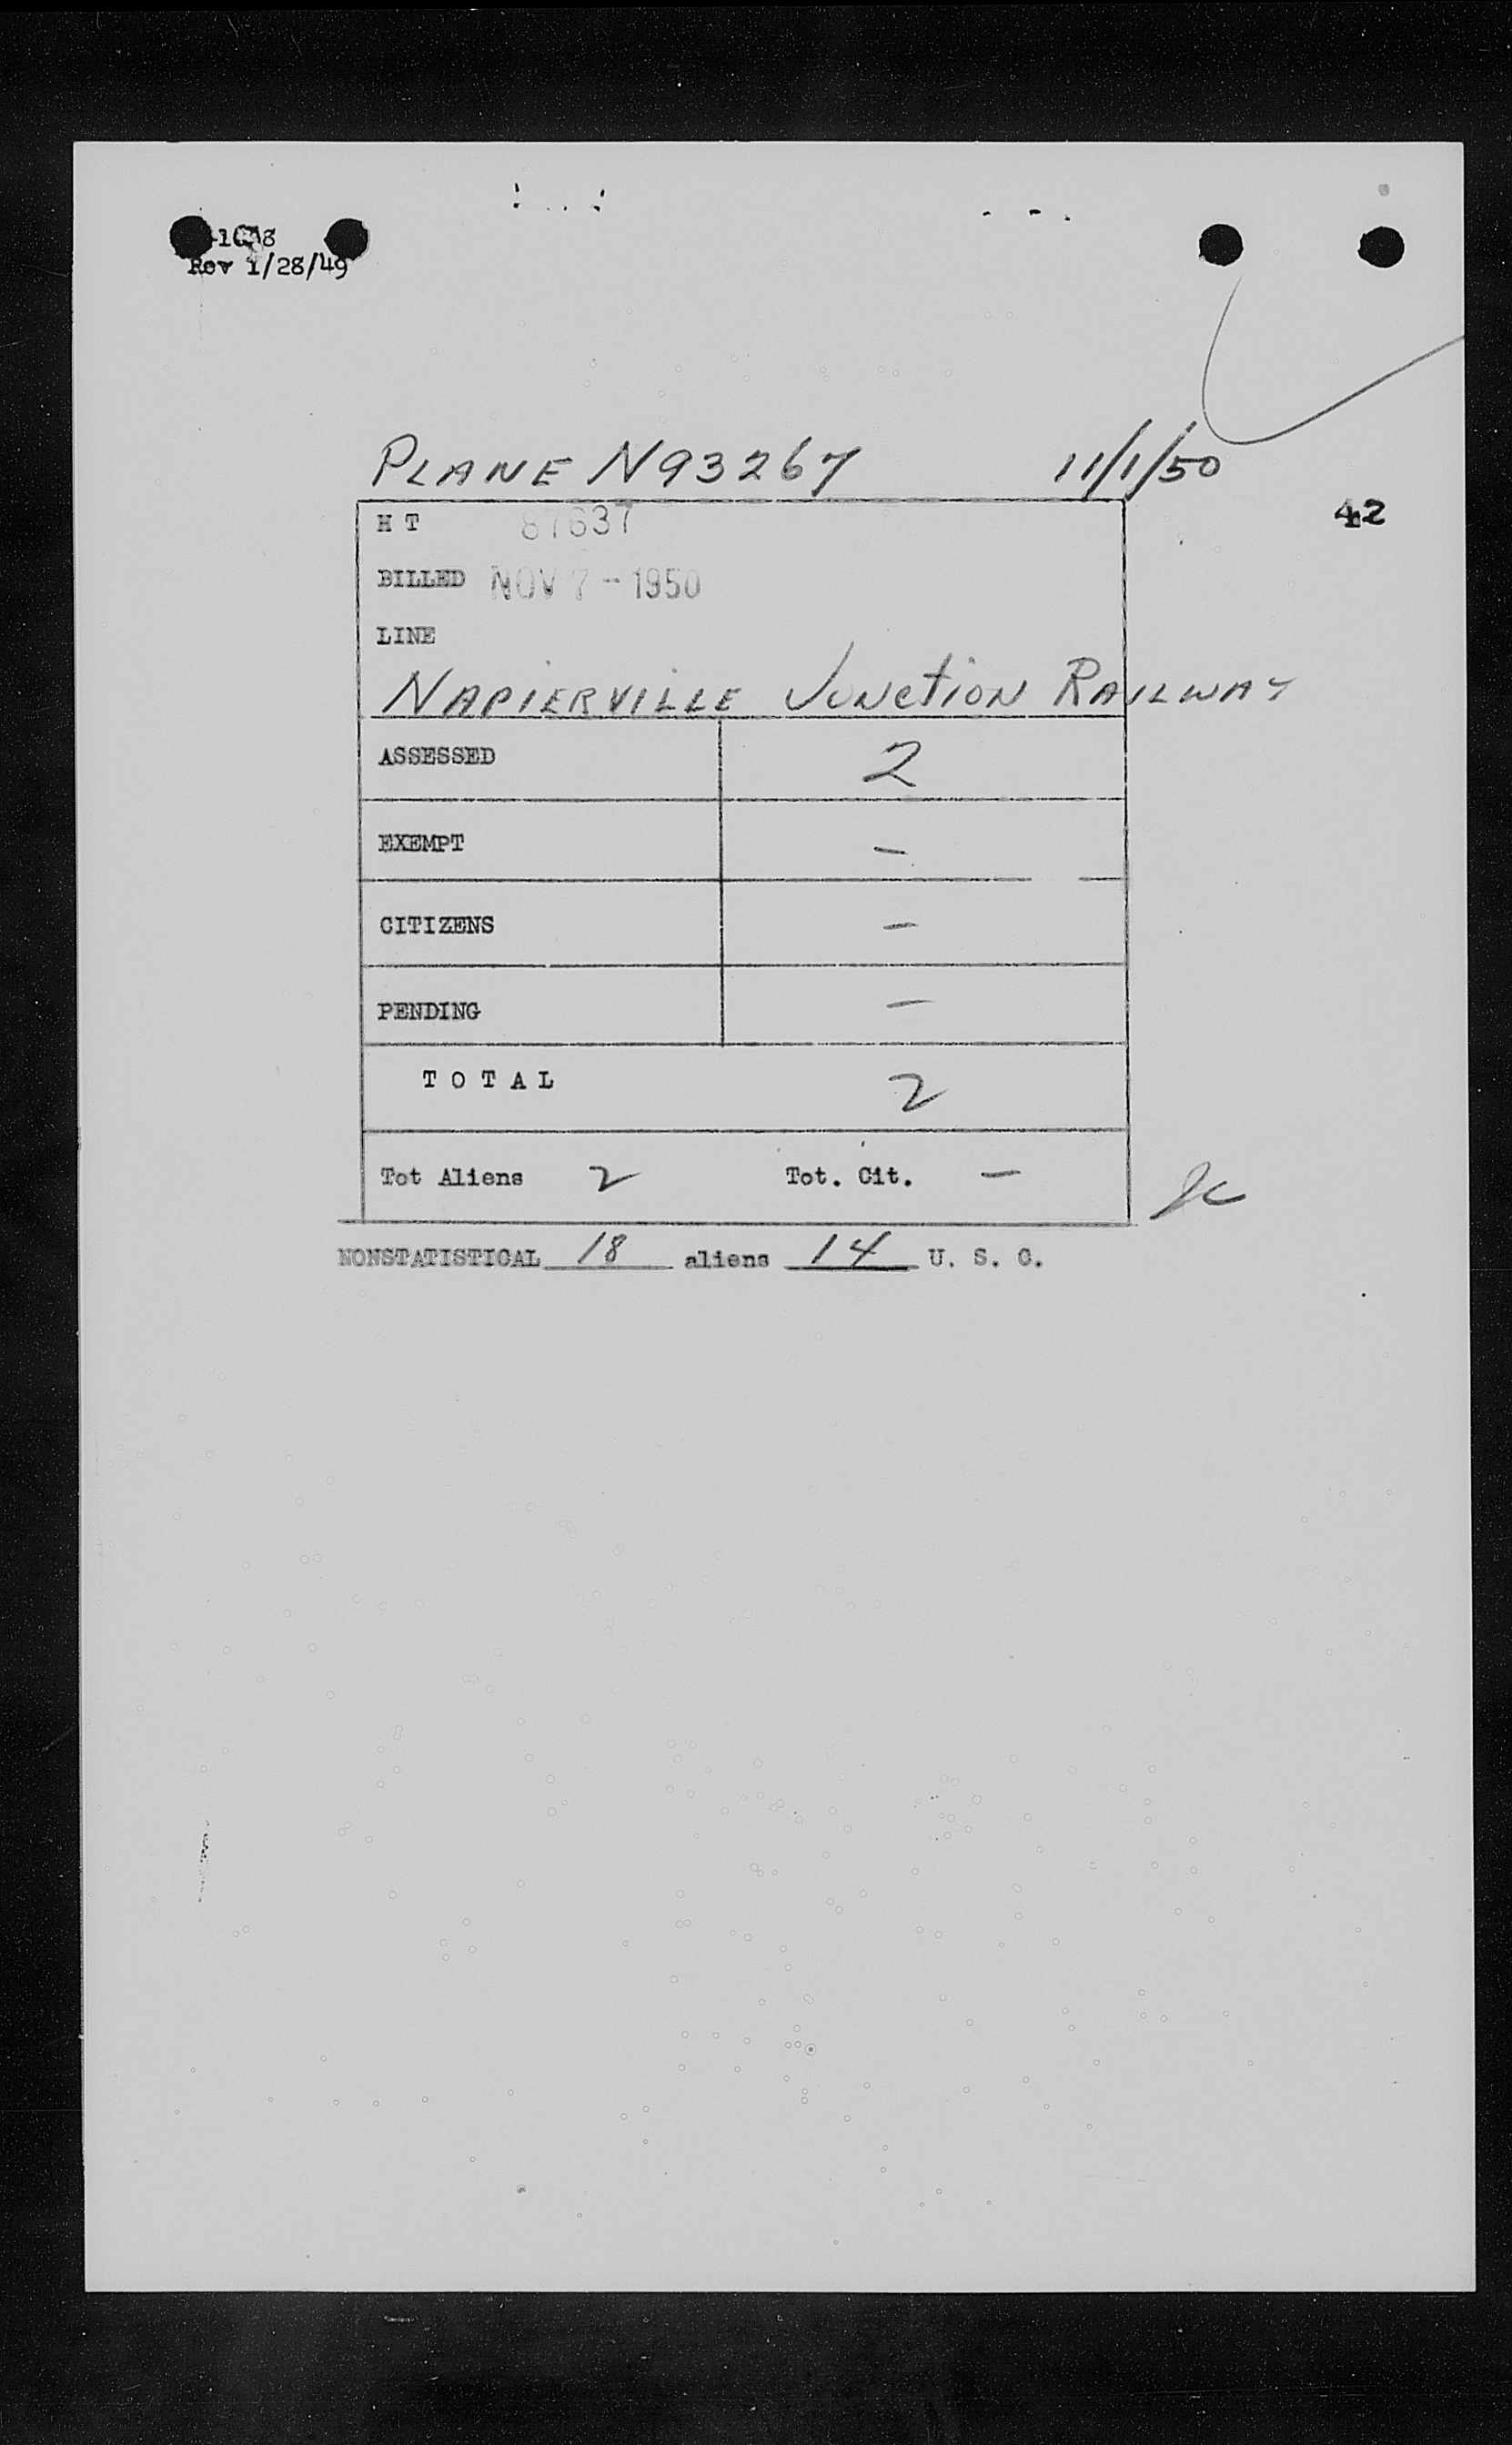 Rev 1/28/49
PLANE N93267 11/1/50
42
H T 87637
BILLED NOV 7 - 1950
LINE
NAPIERVILLE JUNCTION RAILWAY
ASSESSED 2
EXEMPT -
CITIZENS -
PENDING -
T O T A L 2
Tot Aliens 2 Tot. Cit. -
NONSTATISTICAL 18 aliens 14 U. S. C.